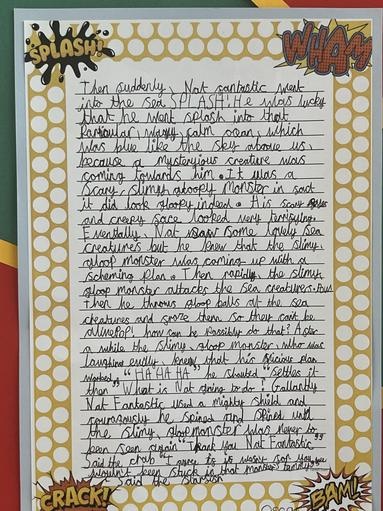 SPLASH!
WHAM
Then suddenly, Nat fantastic went
into the sea SPLASH! He was lucky
that he went splash into that
Particular, wavy, calm ocean, which
was blue like the sky above us,
because a mysteryious creature was
coming towards him. It was a
Scary, slimy, gloopy Monster in fact
it did look gloopy indeed. His scary
and creepy face looked very terrifying.
Eventally, Nat saw some lovely sea
creatures but he knew that the slimy,
gloop monster was coming up with a
scheming plan. Then rapidly, the slimy
gloop monster attacks the sea creatures.
Then he throws gloop balls at the sea
creatures and froze them so they cant be
alive POP! how can he possibly do that? After
a while the slimy, gloop monster, who was
laughing evilly, knew that his vicious plan
worked. "HA HA HA" he shouted "settles it
then" What is Nat going to do? Gallantly
Nat Fantastic used a mighty shield and
couragously he spined and spined until
the slimy, gloop monster was never to
been seen again "Thank you Nat Fantastic"
said the crab "I agree, if it wasnt for you, we
wouldn't been stuck in that monsters
said the starfish
CRACK!
Oscar
BAM!